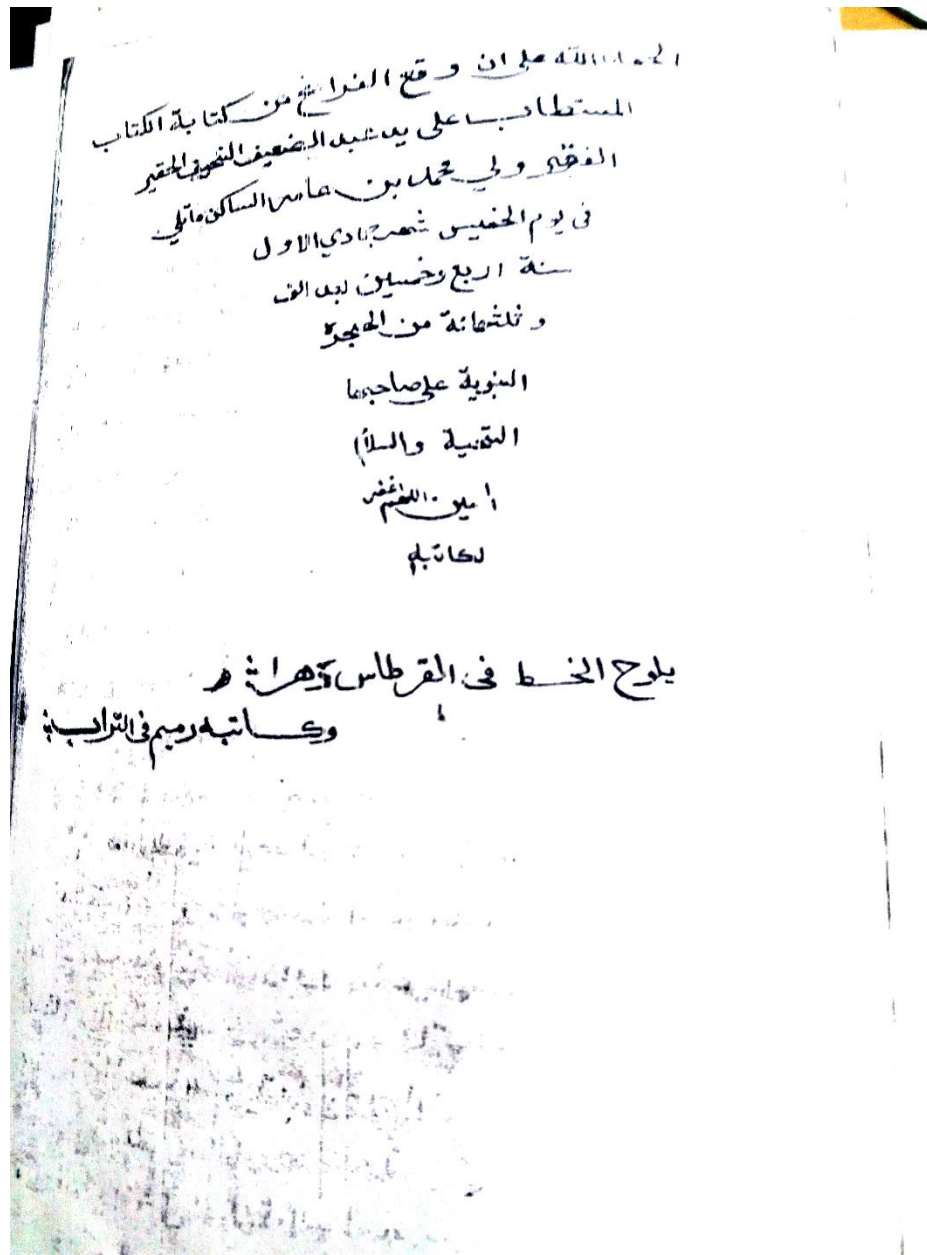 الحمد لله على ان وقع الفراغ من كتابة الكتاب
المستطاب على يد عبد الضعيف النحيف الحقير
الفقير ولي محمد بن عامر الساكن ماتلي
في يوم الخميس شهر جمادي الاول
سنة اربع وخمسين بعد الف
و ثلثمائة من الهجرة
النبوية على صاحبها
التحية والسلام
امين اللهم اغفر
لكاتبه
يلوح الخط في القرطاس دهرا
وكاتبه رميم في التراب